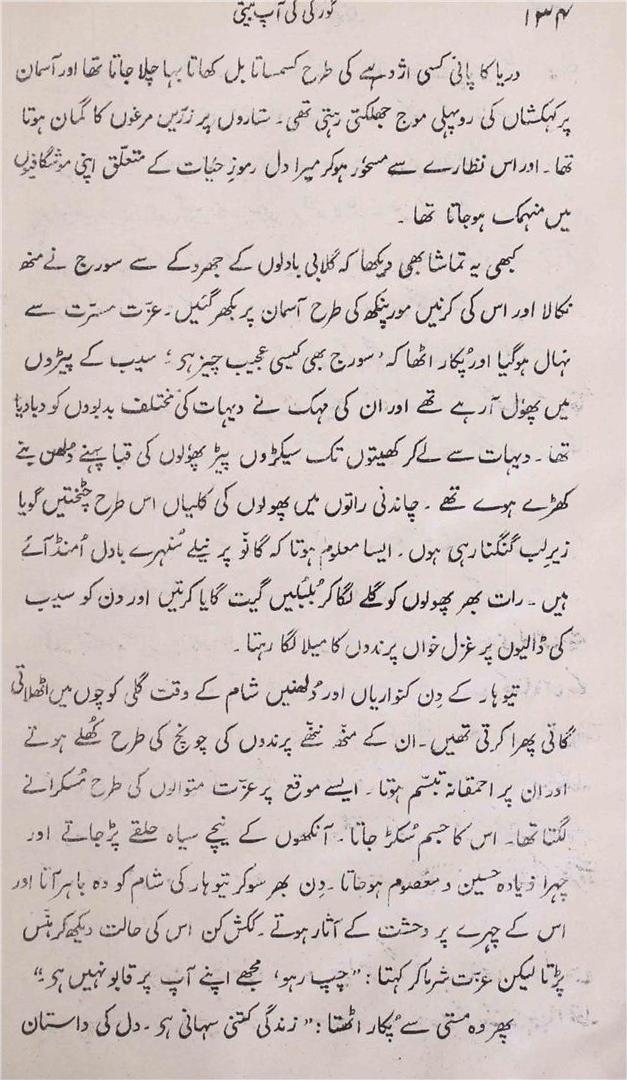 ۱۳۴ گورکی کی آپ بیتی
دریا کا پانی کسی اژدہے کی طرح کسمساتا بل کھاتا بہا چلا جاتا تھا اور آسمان
پر کہکشاں کی روپہلی موج جھلکتی رہتی تھی۔ ستاروں پر زرّیں مرغوں کا گمان ہوتا
تھا۔ اور اس نظارے سے مسحور ہوکر میرا دل رموزِ حیات کے متعلّق اپنی موشگافیوں
میں منہمک ہوجاتا تھا۔
کبھی یہ تماشا بھی دیکھا کہ گلابی بادلوں کے جھروکے سے سورج نے منھ
نکالا اور اس کی کرنیں مورپنکھ کی طرح آسمان پر بکھر گئیں۔ عزّت مسرّت سے
نہال ہوگیا اور پُکار اٹھا کہ ’سورج بھی کیسی عجیب چیز ہی‘؛ سیب کے پیڑوں
میں پھوٗل آرہے تھے اور ان کی مہک نے دیہات کی مختلف بدبوؤں کو دبا دیا
تھا۔ دیہات سے لے کر کھیتوں تک سیکڑوں پیڑ پھوٗلوں کی قبا پہنے دُلھن بنے
کھڑے ہوے تھے۔ چاندنی راتوں میں پھولوں کی کلیاں اس طرح چٹختیں گویا
زیرِلب گنگنا رہی ہوں۔ ایسا معلوم ہوتا کہ گانؤ پر نیلے سُنہرے بادل اُمنڈ آئے
ہیں۔ رات بھر پھولوں کو گلے لگا کر بُلبلیں گیت گایا کرتیں اور دن کو سیب
کی ڈالیوں پر غزل خواں پرندوں کا میلا لگا رہتا۔
تیوہار کے دِن کنواریاں اور دُلھنیں شام کے وقت گلی کوچوں میں اٹھلاتی
گاتی پھرا کرتی تھیں۔ ان کے منھ ننھّے پرندوں کی چونچ کی طرح کھُلے ہوتے
اور ان پر احمقانہ تبسّم ہوتا۔ ایسے موقع پر عزّت متوالوں کی طرح مُسکرانے
لگتا تھا۔ اس کا جسم سُکڑ جاتا۔ آنکھوں کے نیچے سیاہ حلقے پڑجاتے اور
چہرا زیادہ حسین و معصوم ہوجاتا۔ دِن بھر سوکر تیوہار کی شام کو وہ باہر آتا اور
اس کے چہرے پر وحشت کے آثار ہوتے۔ ککش کن اس کی حالت دیکھ کر ہنس
پڑتا لیکن عزّت شرما کر کہتا: ”چپ رہو، مجھے اپنے آپ پر قابو نہیں ہی۔“
پھر وہ مستی سے پُکار اٹھتا: ”زندگی کتنی سہانی ہی۔ دل کی داستان